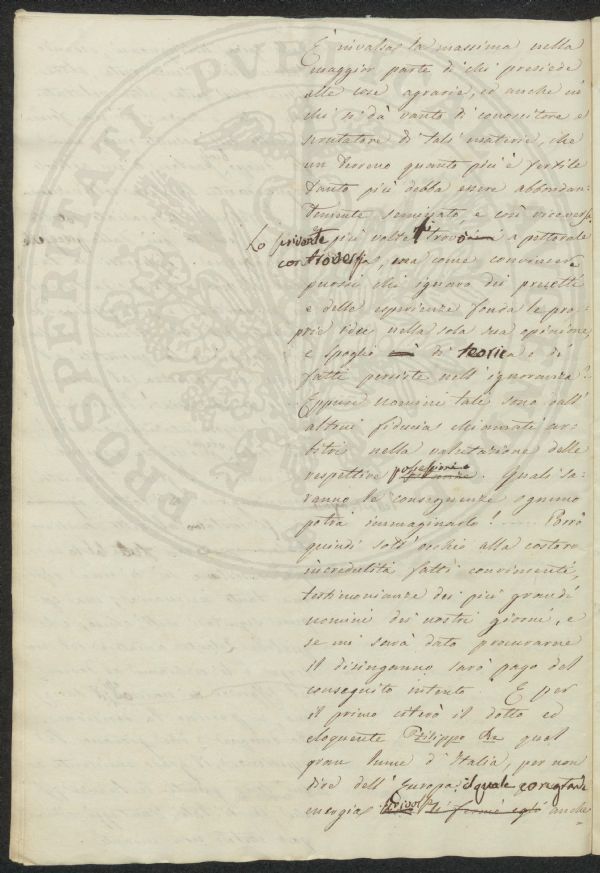 È invalsa la massima nella
maggior parte di chi presiede
alle cose agrarie, ed anche in
chi si dà vanto di conoscitore e
scrutatore di tali materie, che
un terreno quanto più è fertile
tanto più debba essere abbondan-
temente seminato, e così viceversa.
Lo scrivente più volte si trovò a pettorale
controversia, ma come convincere
puossi chi ignaro dei precetti
e della esperienza fonda le pro-
prie idee nella sola sua opinione,
e spoglio di teorica e di
fatti persiste nell'ignoranza?
Eppure uomini tali sono dall'
altrui fiducia chiamati ar-
bitri nella valutazione delle
respettive possessioni. Quali sa-
ranno le conseguenze ognuno
potrà immaginarlo! Porrò
quindi sott'occhio alla costoro
incredulità fatti convincenti,
testimonianze dei più grandi
uomini dei nostri giorni, e
se mi sarà dato procurarne
il disinganno sarò pago del
conseguito intento. E per
il primo citerò il dotto ed
eloquente Filippo Re quel
gran lume d'Italia, per non
dire dell'Europa, il quale con grande
energia si fermò egli anche
PROSPERITATI PVBLICAE